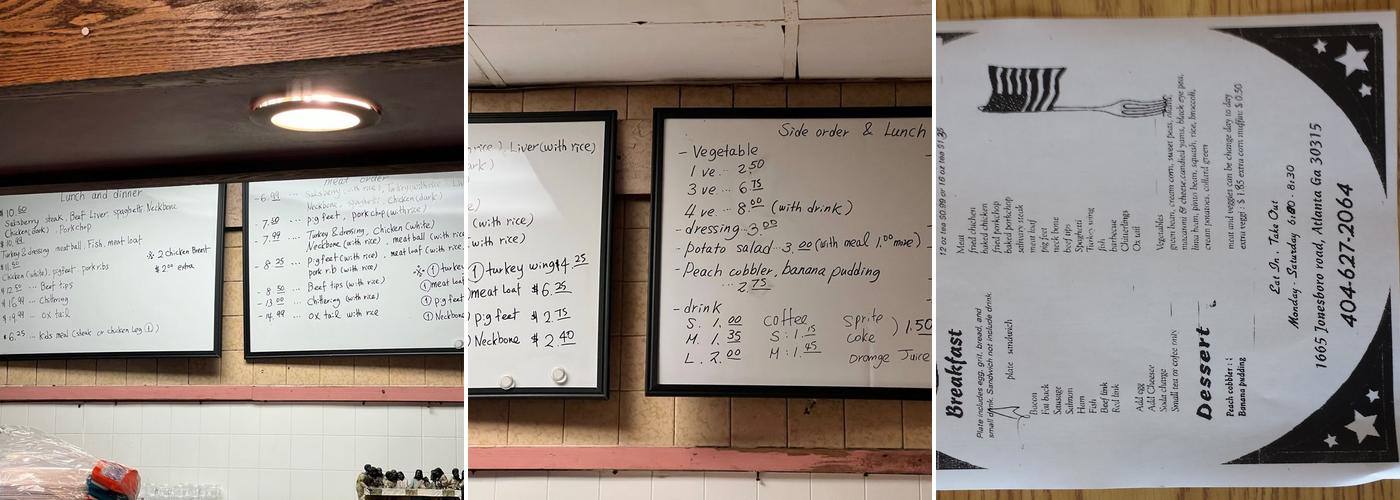 Lunch and dinner
$10.50
Salsberry steak, Beef Liver, spaghetti, Neckbone
Chicken (dark), Porkchop
$10.99
Turkey & dressing, meatball, Fish, meat loaf
$11.50
Chicken (white), pigfeet, pork ribs
$12.50 ... Beef tips
$16.99 ... Chittering
$19.99 ... ox tail
$6.25 ... Kids meal (steak or chicken Leg ①)
※ 2 Chicken Breast
$2.00 extra
meat order
- 6.99 ... Salsberry (with rice), Turkey (with rice)
Neckbone, spaghetti, Chicken (dark)
7.50 ... pigfeet, porkchop (with rice)
- 7.99 ... Turkey & dressing, Chicken (white)
Neckbone (with rice), meatball (with rice)
- 8.25 ... Pigfeet (with rice), meat loaf (with rice
pork rib (with rice)
- 8.50 ... Beef tips (with rice)
- 13.00 ... Chittering (with rice)
- 14.99 ... ox tail with rice
※ ① turkey
① meat loaf
① pig feet
① Neckbone
rice), Liver (with rice)
(with rice)
with rice)
① turkey wing $4.25
meat loaf $6.25
pig feet $2.75
Neckbone $2.40
Side order & Lunch
- Vegetable
1 ve ... 2.50
3 ve ... 6.75
4 ve ... 8.00 (with drink)
- dressing ... 3.00
- potato salad ... 3.00 (with meal 1.00 more)
- Peach cobbler, banana pudding
... 2.75
- drink
S. 1.00 Coffee Sprite
M. 1.35 S: 1.15 Coke ) 1.50
L. 2.00 M: 1.45 Orange Juice
Breakfast
Plate includes egg, grit, bread, and
small drink. Sandwich not include drink
plate sandwich
Bacon
Fat back
Sausage
Salmon
Ham
Fish
Beef link
Red link
Add egg
Add Cheese
Soda charge
Small tea or cofee only
Dessert
Peach cobbler :
Banana pudding
Meat
fried chicken
baked chicken
fried porkchop
baked porkchop
salisbury steak
meat loaf
pig feet
neck bone
beef tips
Spaghetti
Turkey wing
fish
barbecue
Chitterlings
Ox tail
Vegetables
green bean, cream corn, sweet peas,
macaroni & cheese, candied yams, black eye pea,
lima bean, pinto bean, squash, rice, broccoli,
cream potatoes, collard green
meat and veggies can be change day to day
extra veggi : $ 1.85 extra corn muffins $ 0.50
Eat In. Take Out
Monday - Saturday 6:00 8:30
1665 Jonesboro road, Atlanta Ga 30315
404-627-2064